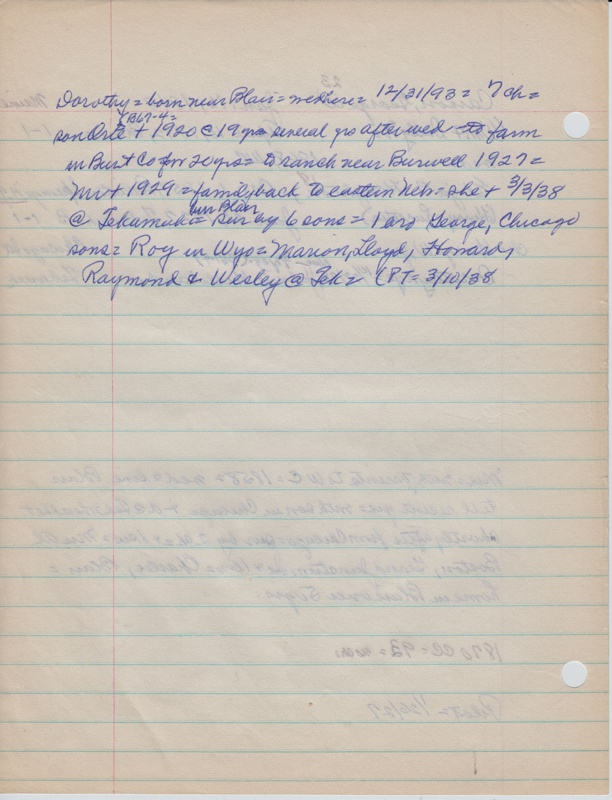 Dorothy = born near Blair = wed here = 12/31/93 = 7 ch =
son Orle + 1920 @ 19 yrs several yrs after wed to farm
in Burt Co for 20 yrs = to ranch near Burwell 1927 =
Mr + 1929 = family back to eastern Neb = she + 3/3/38
@ Tekamah = bur Blair = sur by 6 sons = 1 bro George, Chicago
sons = Roy in Wyo = Marion, Lloyd, Howard,
Raymond & Wesley @ Tek = PT = 3/10/38